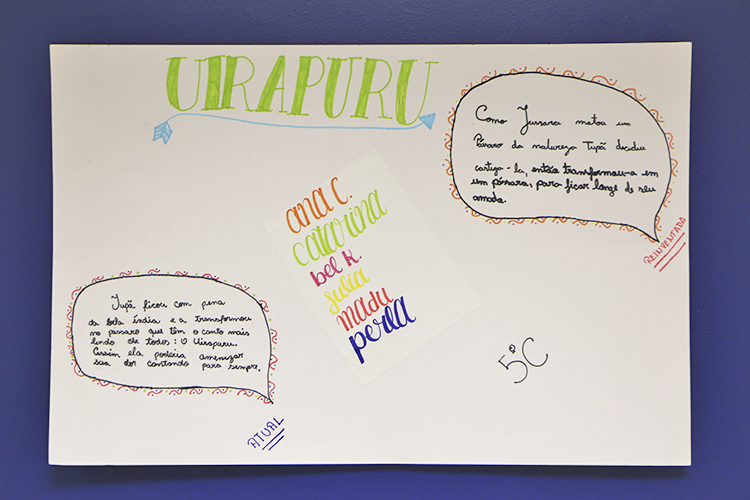 UIRAPURU
Como Jussara matou um
Pássaro da natureza Tupã decidiu
castiga-la, então transformou-a em
um pássaro, para ficar longe de seu
amado.
REINVENTADA
ana C.
catarina
bel k.
Julia
madu
perla
Tupã ficou com pena
da bela índia e a transformou
no pássaro que têm o canto mais
lindo de todos: O Uirapuru.
Assim ela poderia amenizar
sua dor cantando para sempre.
ATUAL
5ºC